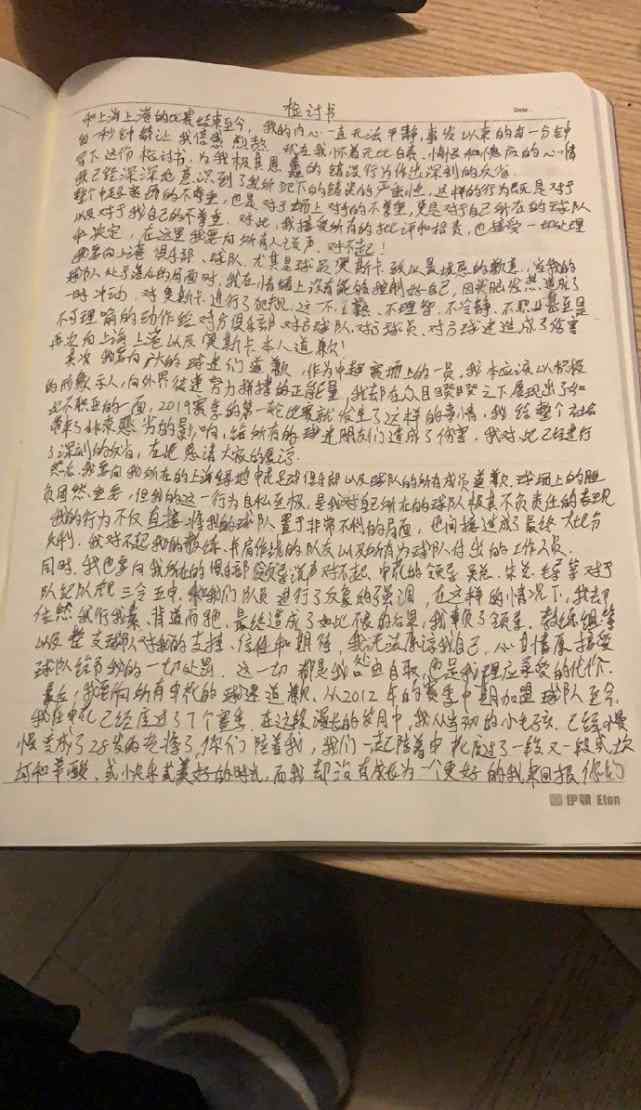 检讨书
Date
和上海上港的比赛结束至今，我的内心一直无法平静，事发以来的每一分钟
每一秒钟都让我倍感煎熬。现在我怀着无比自责、悔恨和愧疚的心情
写下这份检讨书，为我极其愚蠢的错误行为作出深刻的反省
我已经深深地意识到了我所犯下的错误的严重性，这样的行为既是对于
整个中超联赛的不尊重，也是对于场上对手的不尊重，更是对于自己所在的球队
以及对于我自己的不尊重。对此，我接受所有的批评和指责，也接受一切处理
和决定，在这里我要向所有人说声，对不起！
我要向上港俱乐部、球队、尤其是球员奥斯卡致以最诚恳的歉意，当我的
球队处于落后的局面时，我在情绪上没有能够控制好自己，因头脑发热，造成了
一时冲动，对奥斯卡进行了犯规，这一不，不理智、不冷静、不职业甚至是
不可理喻的动作给对方俱乐部对方球队、对方球员、对方球迷造成了伤害
再次向上海上港以及奥斯卡本人道歉！
其次，我要向广大的球迷们道歉，作为中超赛场上的一员，我本应该以积极
的形象示人，向外界传递努力拼搏的正能量，我却在众目睽睽之下展现出了如
此不职业的一面，2019赛季的第一轮比赛就发生了这样的事情，我给整个社会
带来了非常恶劣的影响，给所有的球迷朋友们造成了伤害，我对此已经进行
了深刻的反省，在此恳请大家的原谅
然后，我要向我所在的上海绿地申花足球俱乐部以及球队的所有成员道歉，球场上的胜
负固然重要，但我的这一行为自私至极，是我对自己所在的球队极其不负责任的表现
我的行为不仅直接将我的球队置于非常不利的局面，也间接造成了最终大比分
失利，我对不起我的教练、并肩作战的队友以及所有为球队付出的工作人员
同时，我也要向我所在的俱乐部领导说声对不起，申花的领导吴总、朱总、毛导等对于
队纪队规三令五申，和我们队员进行了反复的强调，在这样的情况下，我却
依然我行我素、背道而驰，最终造成了如此不良的后果，我辜负了领导、教练组等
以及整支球队对我的支持、信任和期待，我无法原谅我自己，心甘情愿接受
球队给予我的一切处罚，这一切都是我咎由自取，也是我理应承受的代价
最后，我要向所有申花的球迷道歉，从2012年的赛季中期加盟球队至今
我在申花已经度过了7个赛季，在这段漫长的岁月中，我从当初的小毛孩，已经慢
慢变成了28岁的老将了，你们陪着我，我们一起陪着申花度过了一段又一段或坎
坷和辛酸，或快乐或美好的时光，而我却没有成为一个更好的我来回报你们
伊顿 Eton